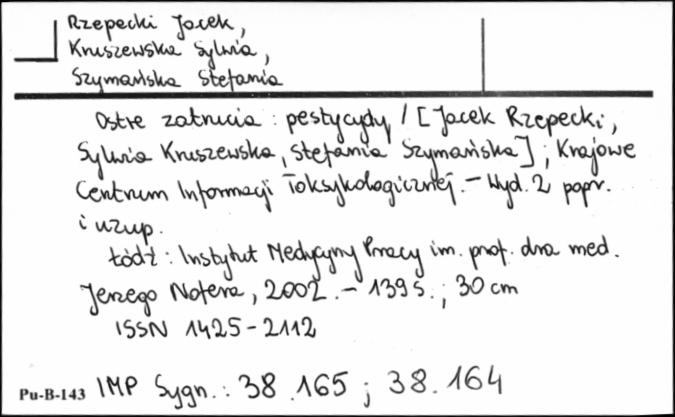 Rzepecki Jacek,
Kruszewska Sylwia,
Szymańska Stefania
Ostre zatrucia : pestycydy / [Jacek Rzepecki,
Sylwia Kruszewska, Stefania Szymańska] ; Krajowe
Centrum Informacji Toksykologicznej. – Wyd. 2 popr.
i uzup.
Łódź : Instytut Medycyny Pracy im. prof. dra med.
Jerzego Nofera, 2002. – 139 s. ; 30 cm
ISSN 1425-2112
Pu-B-143 IMP Sygn.: 38.165 ; 38.164